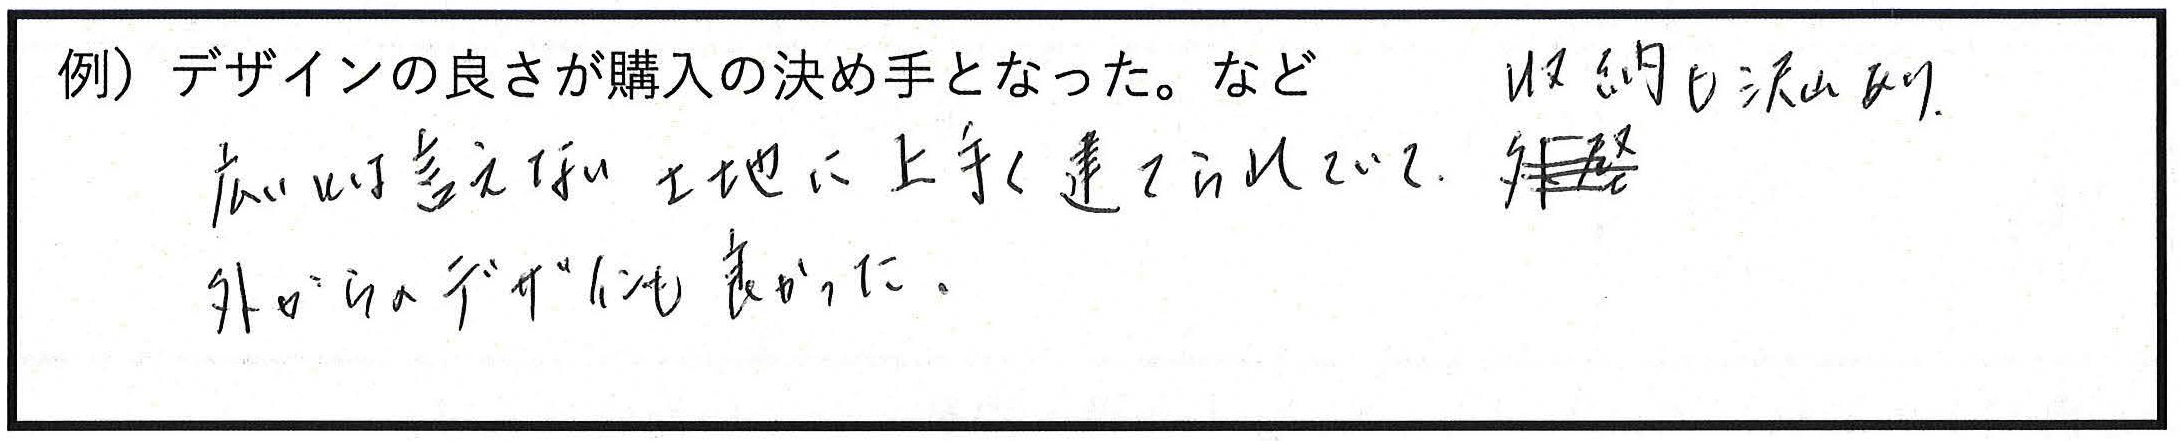 例）デザインの良さが購入の決め手となった。など
収納も沢山あり、
広いとは言えない土地に上手く建てられていて、
外からのデザインも良かった。